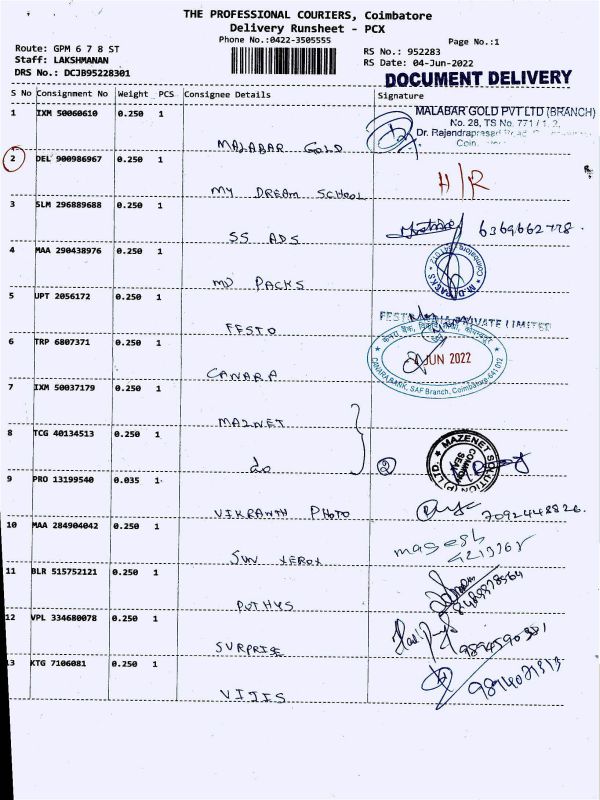 THE PROFESSIONAL COURIERS, Coimbatore
Delivery Runsheet - PCX
Phone No.:0422-3505555
Page No.:1
Route: GPM 6 7 8 ST
RS No.: 952283
Staff: LAKSHMANAN
RS Date: 04-Jun-2022
DRS No.: DCJB95228301
DOCUMENT DELIVERY
S No Consignment No Weight PCS Consignee Details Signature
1 IXM 50060610 0.250 1
MALABAR GOLD PVT LTD (BRANCH)
No. 28, TS No. 771 / 1, 2,
Dr. Rajendraprasad Road,
MALABAR GOLD
2 DEL 900986967 0.250 1
MY DREAM SCHOOL H/R
3 SLM 296889688 0.250 1
SS ADS 6369662778.
4 MAA 290438976 0.250 1
MD PACKS
M.D. PACKS Coimbatore
5 UPT 2056172 0.250 1
FESTO
PRIVATE LIMITED
6 TRP 6807371 0.250 1
CANARA
JUN 2022
CANARA BANK, SAF Branch, Coimbatore-641 012
7 IXM 50037179 0.250 1
MAZNET
8 TCG 40134513 0.250 1
do 2
MAZENET SOLUTION (P) LTD.
COMMON SEAL
9 PRO 13199540 0.035 1
VIKRANTH PHOTO 7092448826.
10 MAA 284904042 0.250 1
SUN XEROX
magesh
11 BLR 515752121 0.250 1
POTHYS
12 VPL 334680078 0.250 1
SURPRISE
13 KTG 7106081 0.250 1
VIJIS